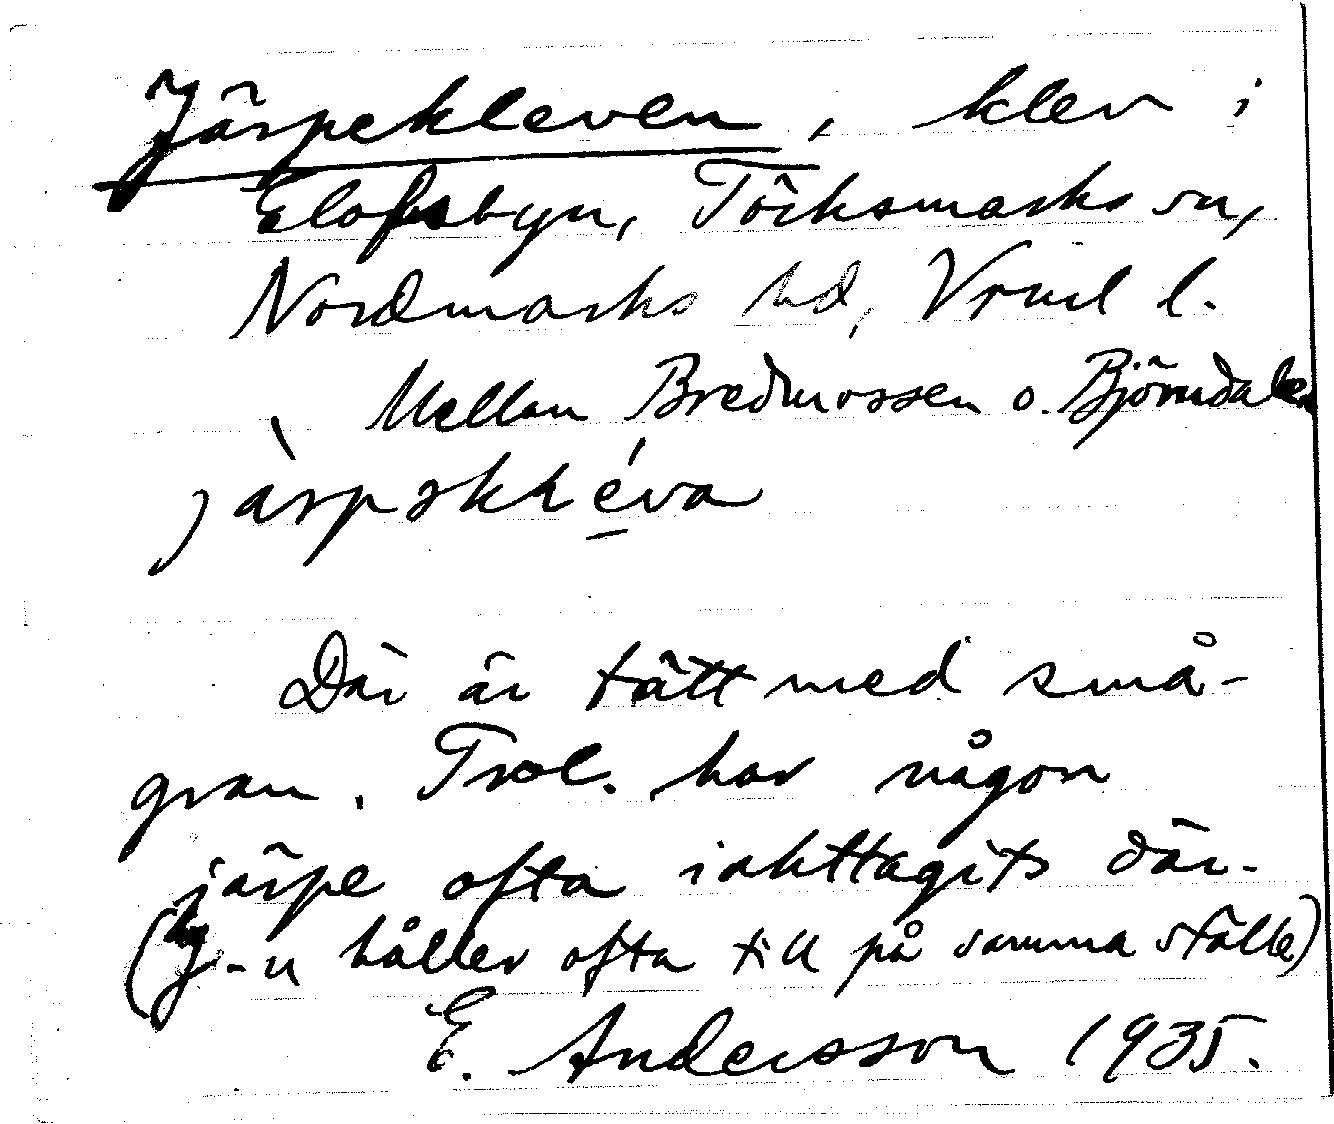 Järpekleven, klev i
Elofsbyn, Töcksmarks sn,
Nordmarks hd, Vrml l.
Mellan Bredmossen o. Björndalen
Där är tätt med små-
gran. Trol. har någon
järpe ofta iakttagits där.
(J-n håller ofta till på samma ställe)
E. Andersson 1935.